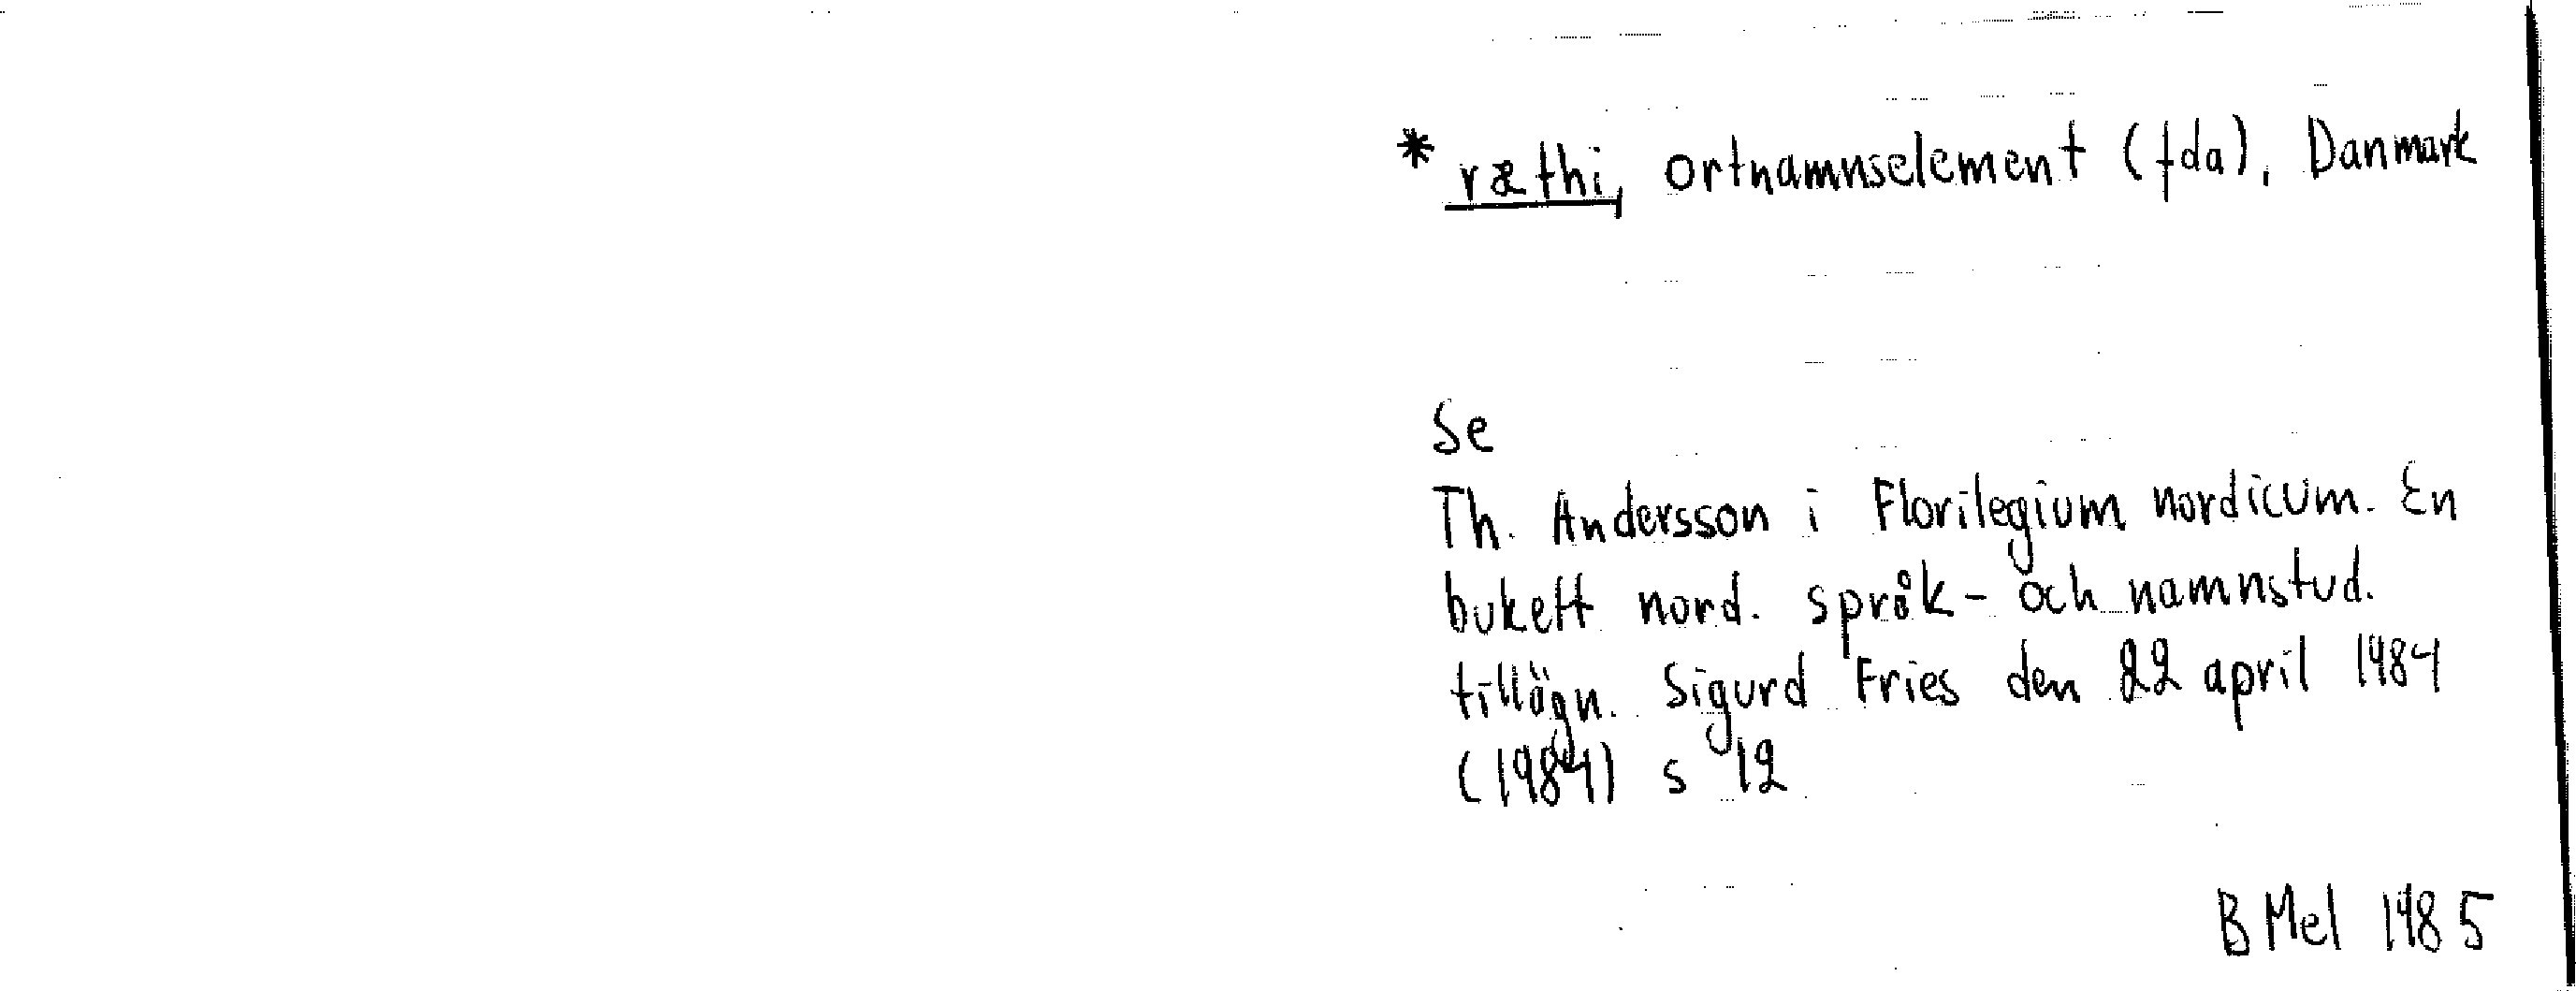 *ræthi, ortnamnselement (fda), Danmark
Se
Th. Andersson i Florilegium nordicum. En
bukett nord. språk- och namnstud.
tillägn. Sigurd Fries den 22 april 1984
(1984) s 12
B Mel 1985